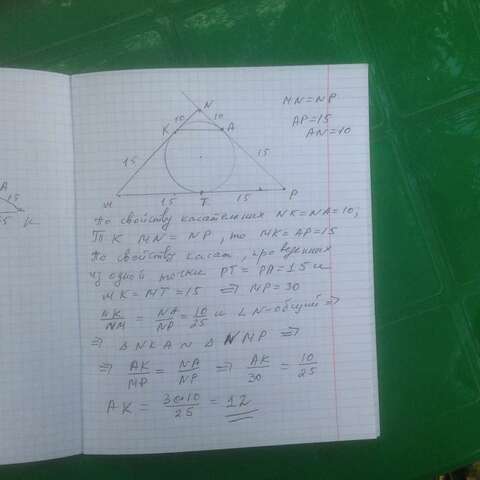 MN = NP
AP = 15
AN = 10
N
10 10
K A
15 15
M 15 T 15 P
A
15
K
По свойству касательних NK = NA = 10,
Т К MN = NP, то MK = AP = 15
По свойству касат, проведенних
из одной точки PT = PA = 15 и
MK = MT = 15 => MP = 30
NK/NM = NA/NP = 10/25 и ∠N = общий =>
=> Δ NKA ~ Δ NMP =>
=> AK/MP = NA/NP => AK/30 = 10/25
AK = 30·10/25 = 12